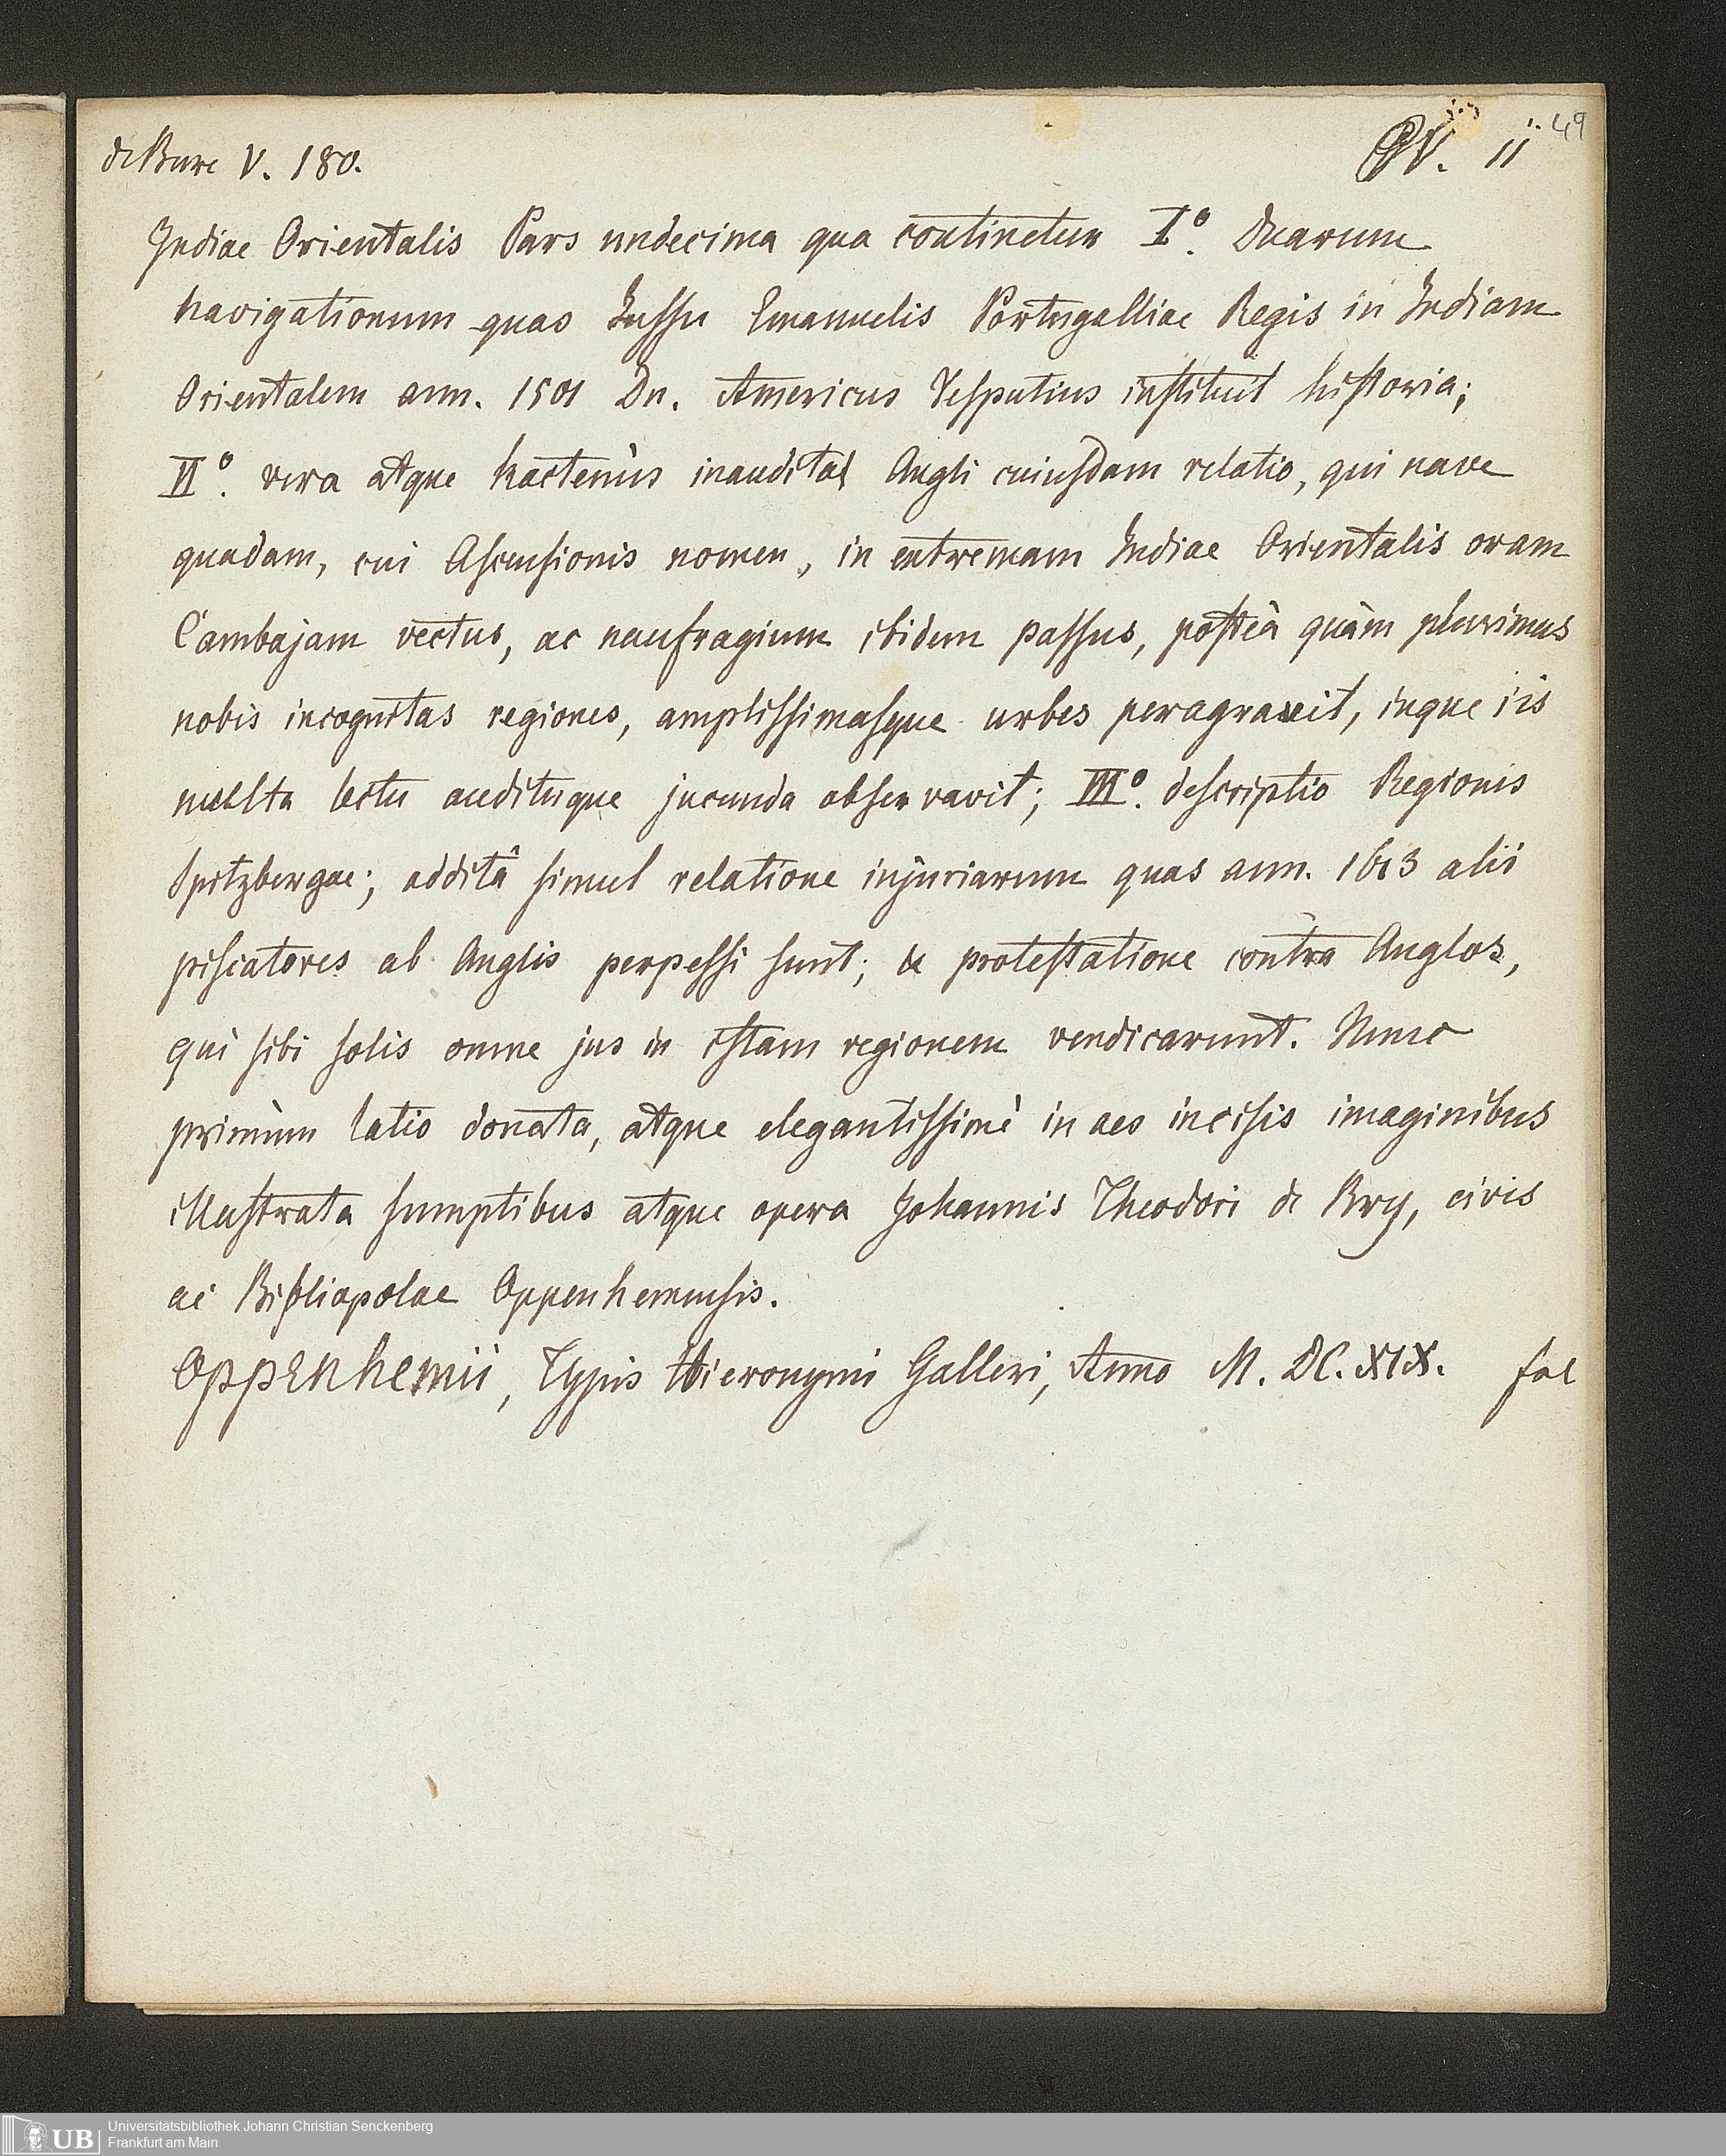 de Bure V. 180.
PV. 11
49
Indiae Orientalis Pars undecima qua continetur I°. Duarum
navigationum quas Jussu Emanuelis Portugalliae Regis in Indiam
Orientalem ann. 1501 Dn. Americus Vesputius instituit historia;
II°. vera atque hactenùs inaudita Angli cuiusdam relatio, qui nave
quadam, cui Ascensionis nomen, in extremam Indiae Orientalis oram
Cambajam vectus, ac naufragium ibidem passus, posteà quàm plurimus
nobis incognitas regiones, amplissimasque urbes peragravit, inque iis
multa lectu audituque jucunda observavit; III°. descriptio Regionis
Spitzbergae; additâ simul relatione injuriarum quas ann. 1613 alii
piscatores ab Anglis perpessi sunt; & protestatione contra Anglos,
qui sibi solis omne jus in istam regionem vendicarunt. Nunc
primùm latio donata, atque elegantissimè in aes incisis imaginibus
illustrata sumptibus atque opera Johannis Theodori de Bry, civis
ac Bibliopolae Oppenhemensis.
Oppenhemii, Typis Hieronymi Galleri, Anno M. DC. XIX. fol
UB
Universitätsbibliothek Johann Christian Senckenberg
Frankfurt am Main